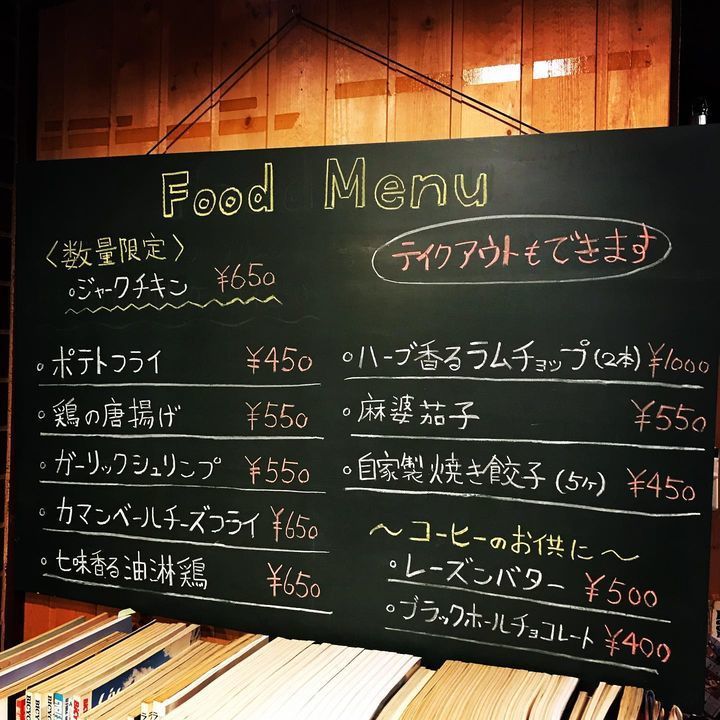 Food Menu
〈数量限定〉
。ジャークチキン ¥650
テイクアウトもできます
。ポテトフライ ¥450
。鶏の唐揚げ ¥550
。ガーリックシュリンプ ¥550
。カマンベールチーズフライ ¥650
。七味香る油淋鶏 ¥650
。ハーブ香るラムチョップ(2本) ¥1000
。麻婆茄子 ¥550
。自家製焼き餃子(5ヶ) ¥450
〜コーヒーのお供に〜
。レーズンバター ¥500
。ブラックホールチョコレート ¥400